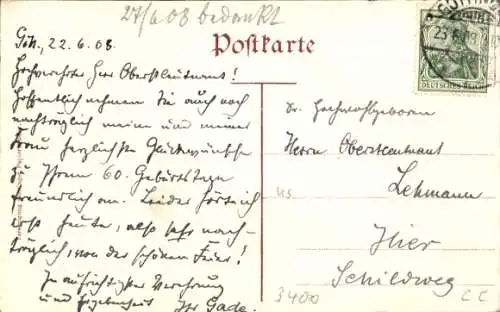 27/6 08 bedankt
Postkarte
Gött., 22.6.08.
Hochverehrter Herr Oberstleutnant!
Hoffentlich nehmen Sie auch noch
nachträglich meine und meiner
Frau herzlichste Glückwünsche
zu Ihrem 60. Geburtstage
freundlich an. Leider hörte ich
erst heute, also sehr nach-
träglich, von der schönen Feier!
In aufrichtigster Verehrung
und Ergebenheit
Ihr Gade.
DEUTSCHES REICH
Sr. Hochwohlgeboren
Herrn Oberstleutnant
Lehmann
Hier
Schildweg
3400
CC